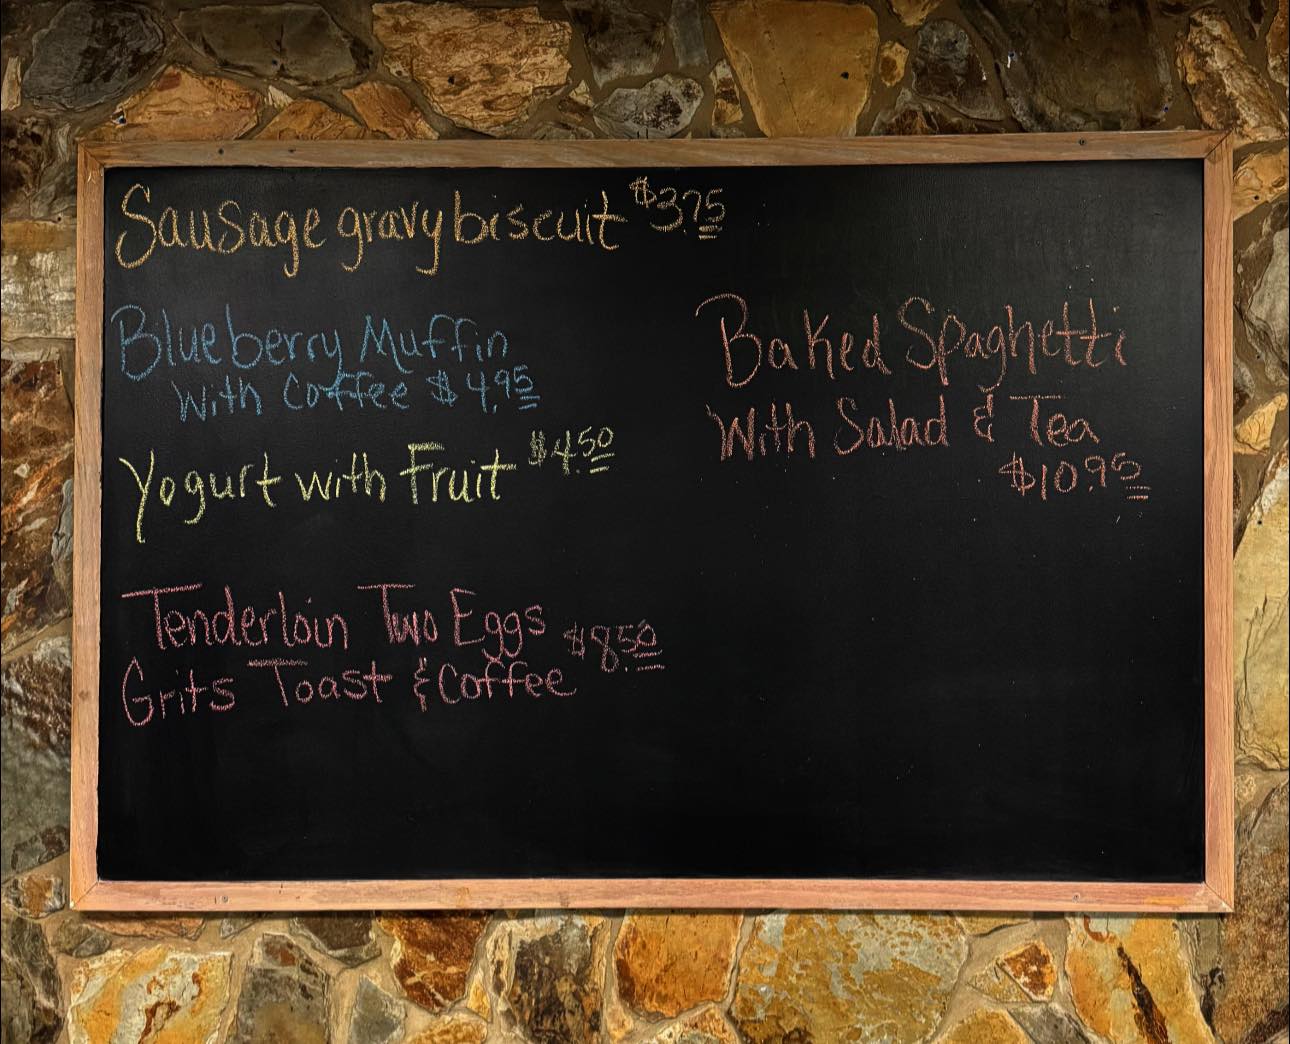 Sausage gravy biscuit $3.75
Blueberry Muffin
With Coffee $4.95
Yogurt with Fruit $4.50
Tenderloin Two Eggs
Grits Toast & Coffee $8.50
Baked Spaghetti
With Salad & Tea
$10.95